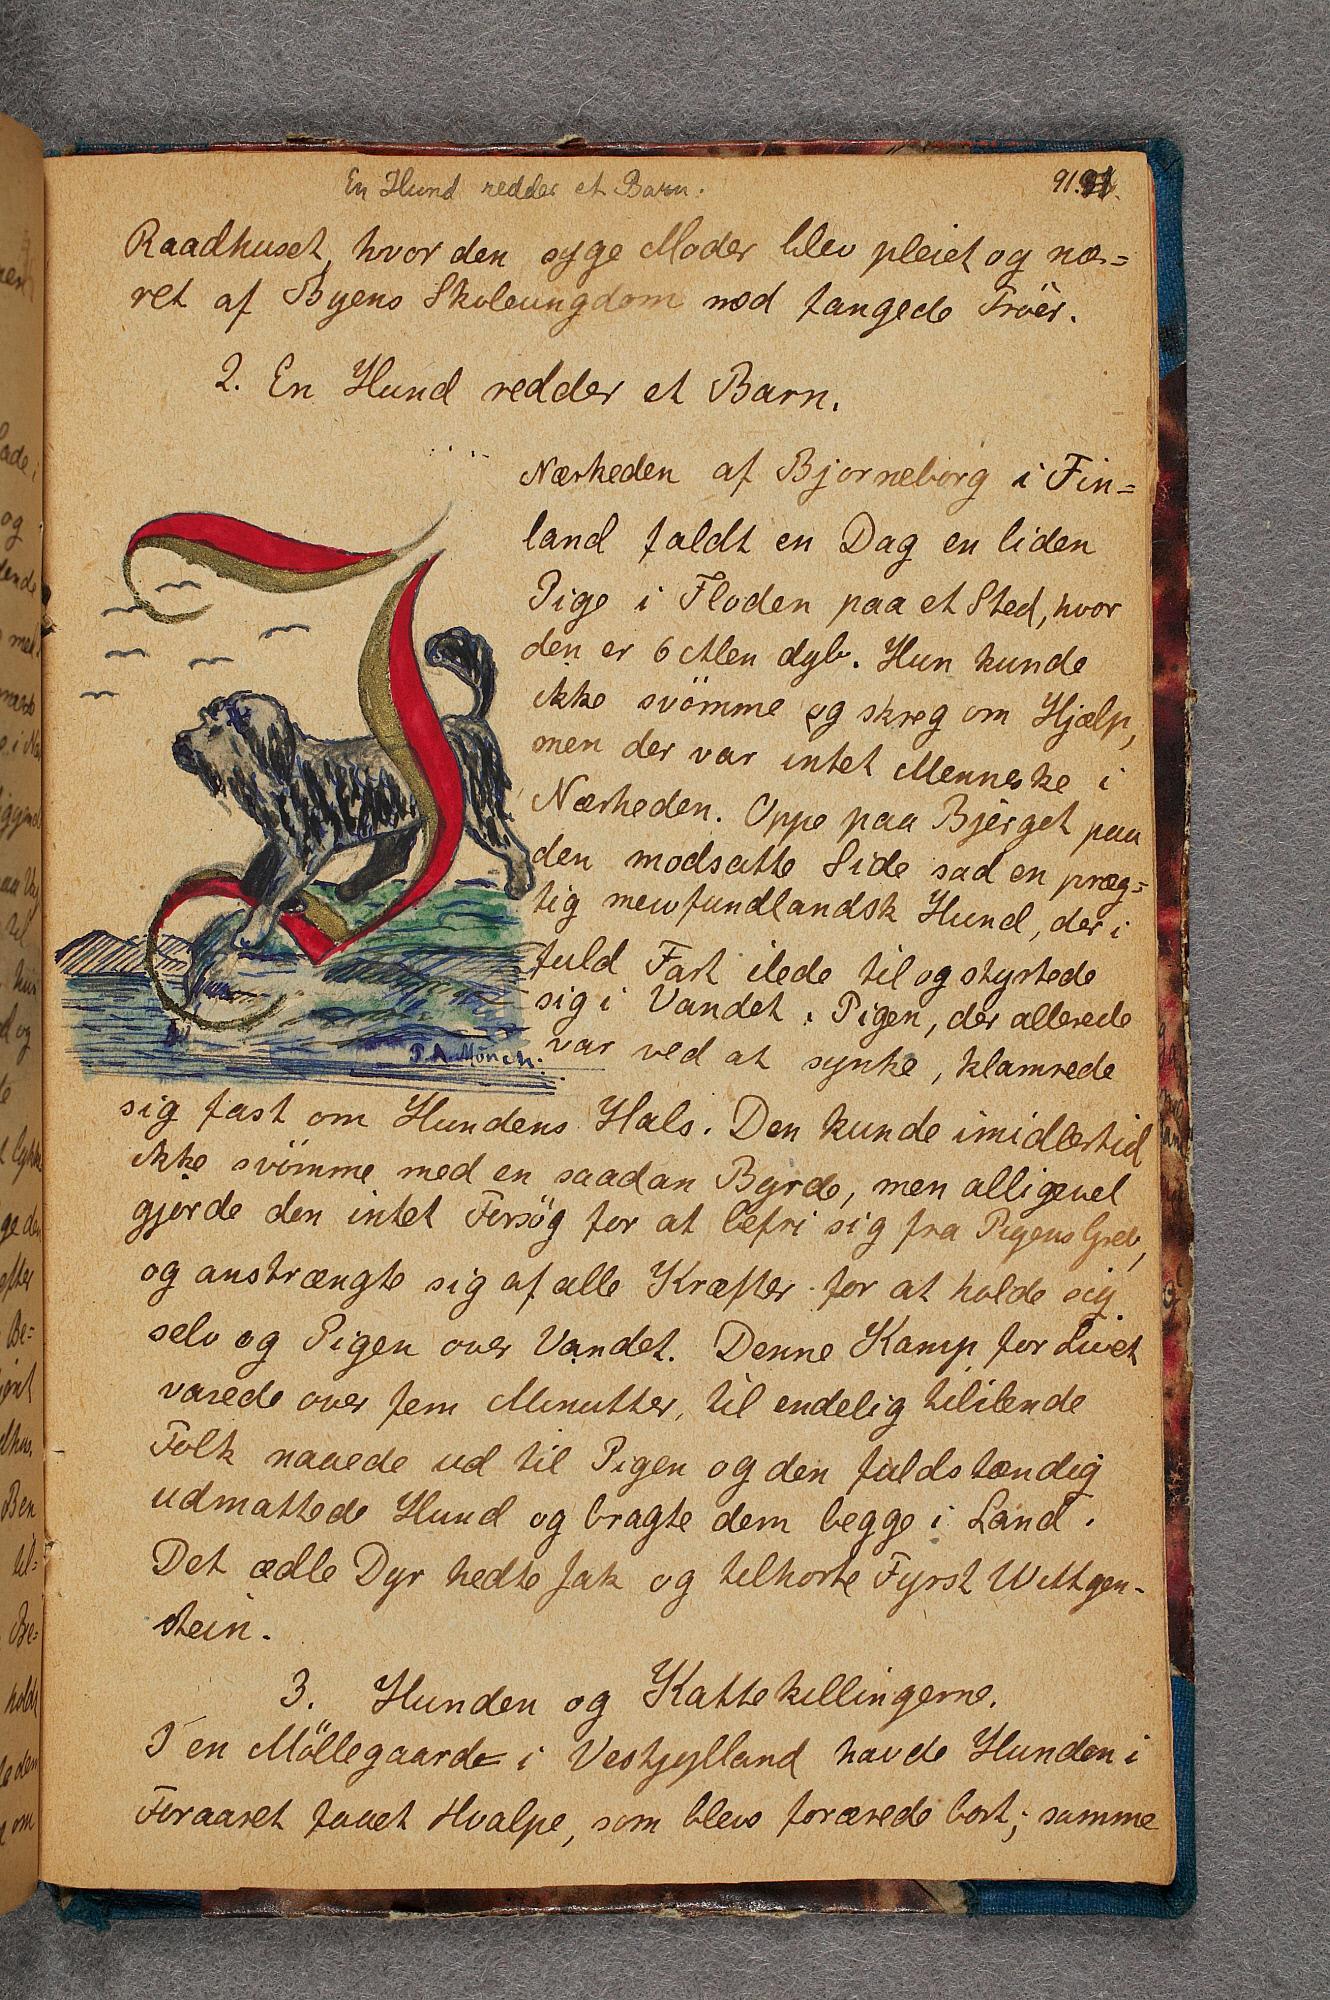 En Hund redder et Barn.
91.
Raadhuset, hvor den syge Moder blev pleiet og næ=
ret af Byens Skoleungdom med fangede Fröer.
2. En Hund redder et Barn.
I
Nærheden af Bjorneborg i Fin=
land faldt en Dag en liden
Pige i Floden paa et Sted, hvor
den er 6 Alen dyb. Hun kunde
ikke svömme og skreg om Hjælp,
men der var intet Menneske i
Nærheden. Oppe paa Bjerget paa
den modsatte Side sad en præg=
tig newfundlandsk Hund, der i
fuld Fart ilede til og styrtede
sig i Vandet. Pigen, der allerede
var ved at synke, klamrede
P. A. Mönch.
sig fast om Hundens Hals. Den kunde imidlertid
ikke svömme med en saadan Byrde, men alligevel
gjorde den intet Forsög for at befri sig fra Pigens Greb,
og anstrængte sig af alle Kræfter for at holde sig
selv og Pigen over Vandet. Denne Kamp for Livet
varede over fem Minutter, til endelig tililende
Folk naaede ud til Pigen og den fuldstændig
udmattede Hund og bragte dem begge i Land.
Det ædle Dyr hedte Jak og tilhorte Fyrst Wittgen-
stein.
3. Hunden og Kattekillingerne.
I en Möllegaard i Vestjylland havde Hunden i
Foraaret faaet Hvalpe, som blev forærede bort; samme